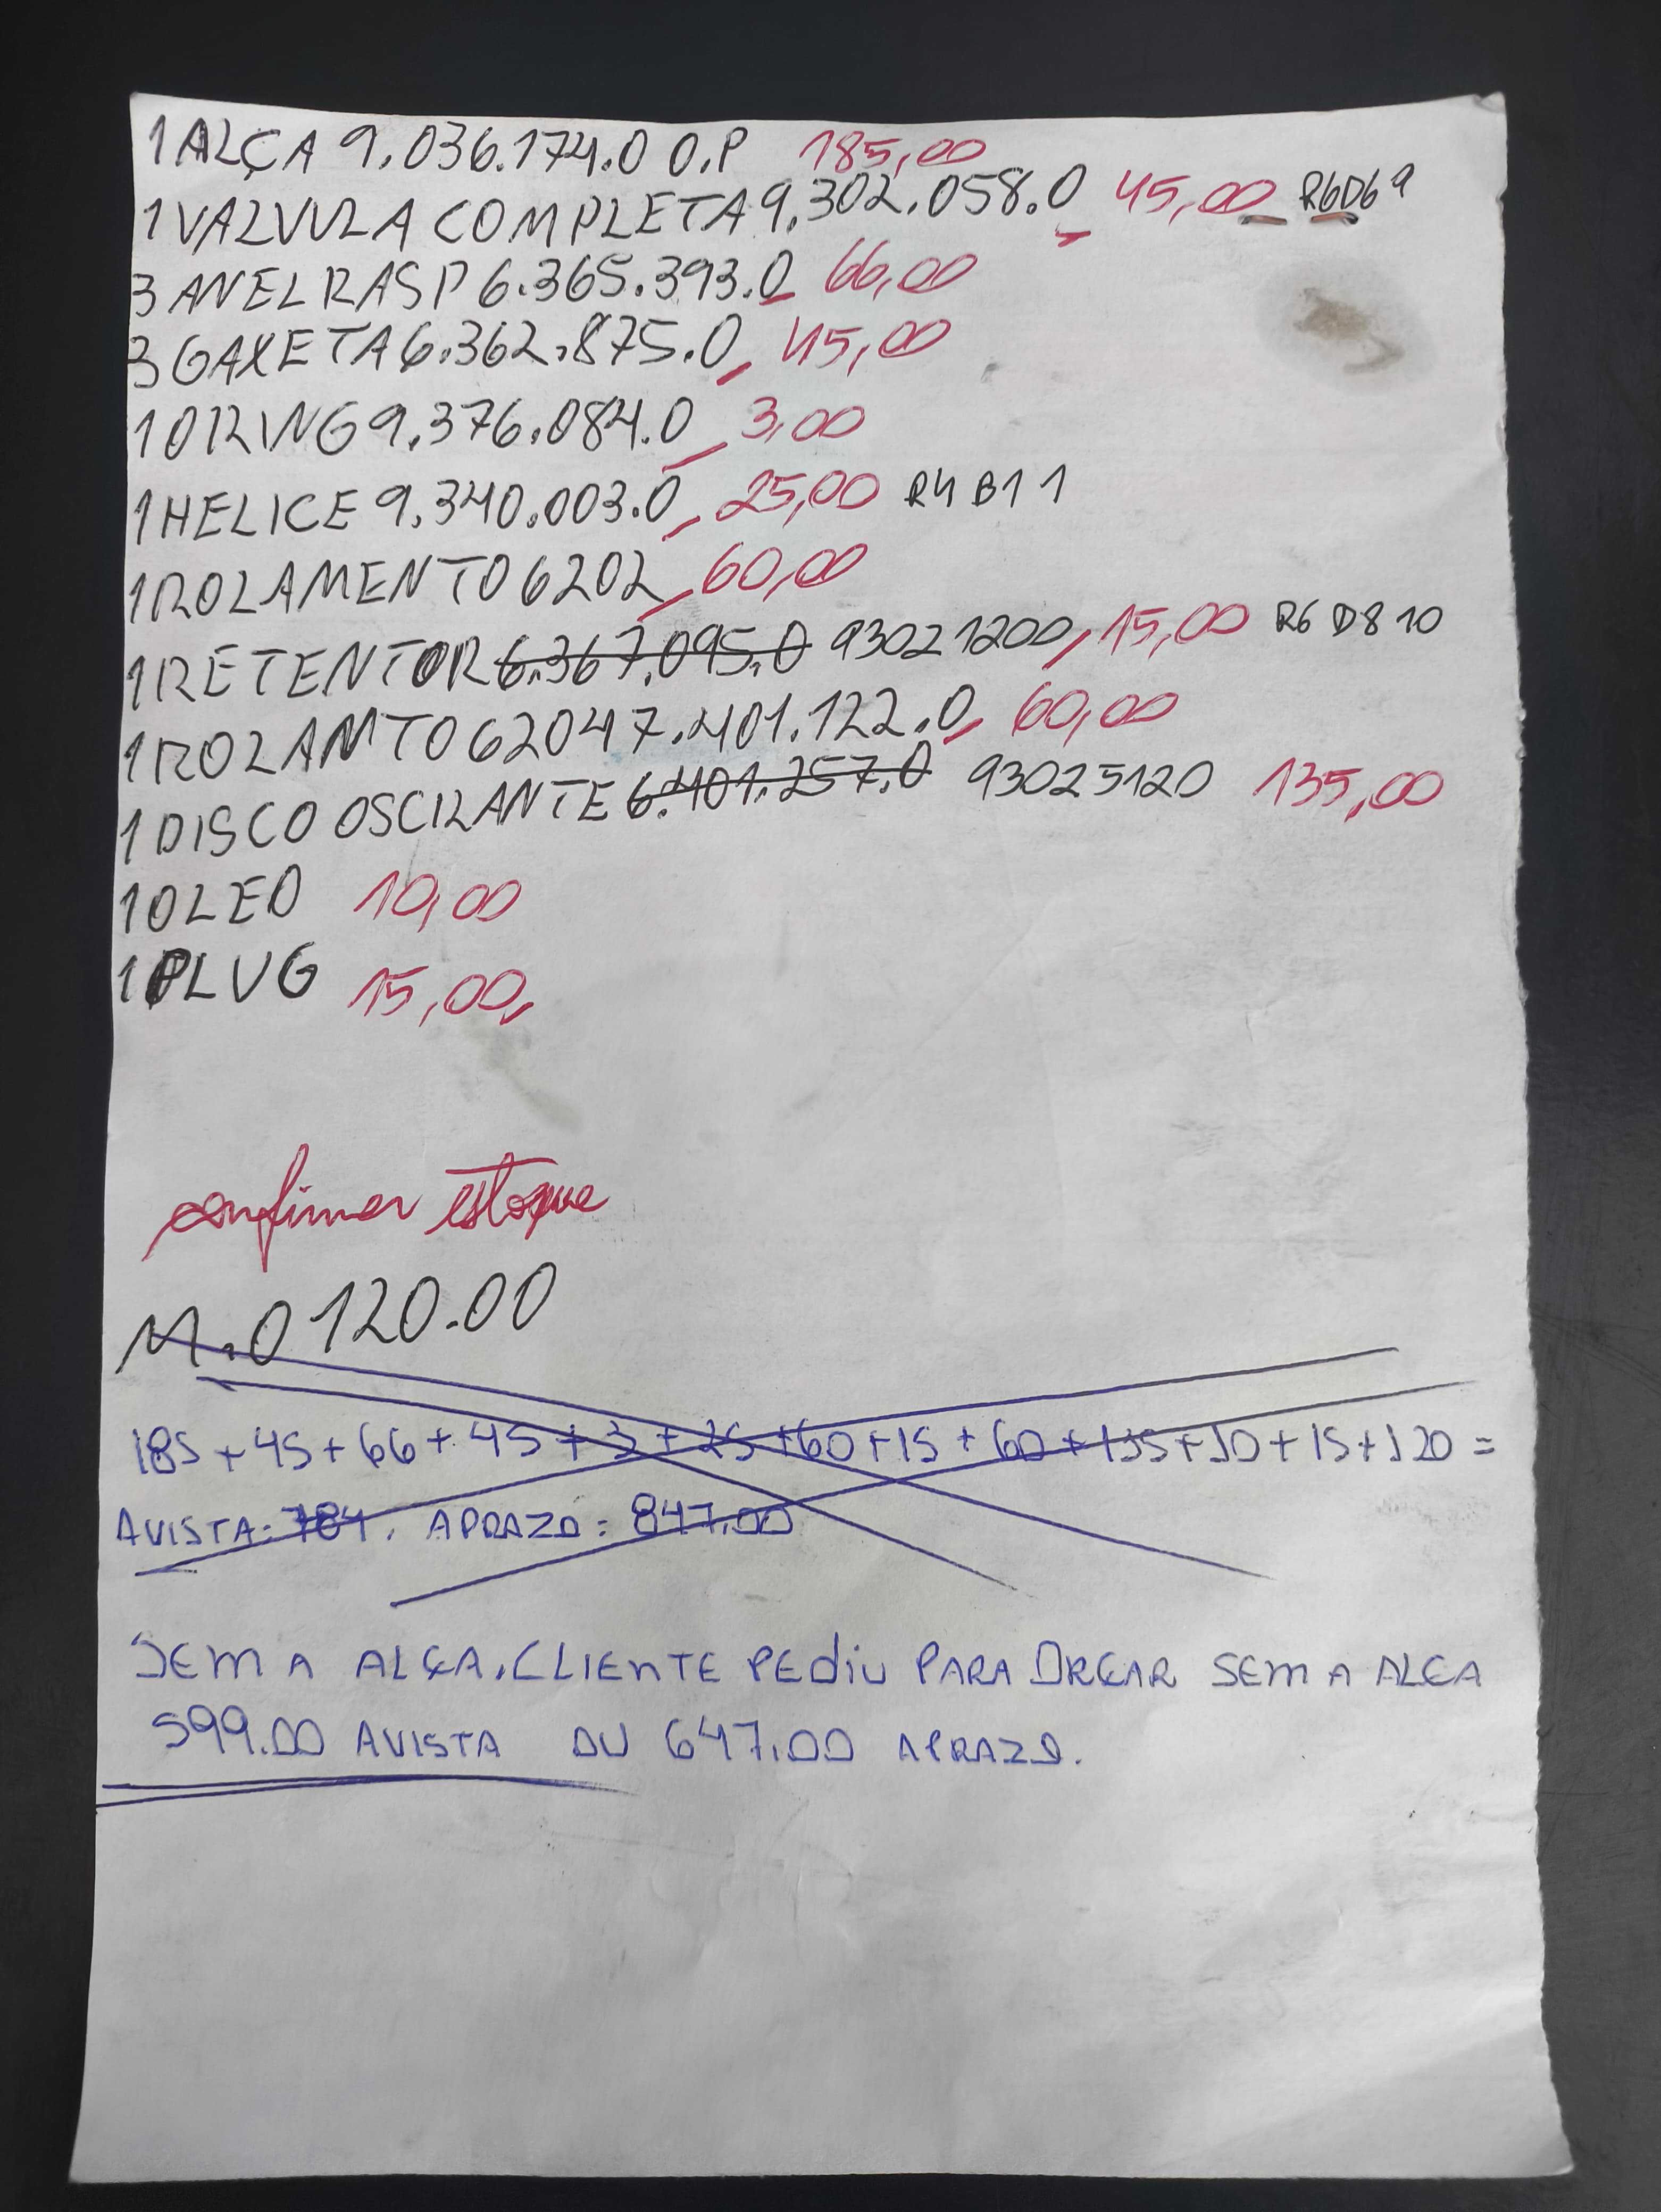 1 ALÇA 9.036.174.0 O.P 185,00
1 VALVULA COMPLETA 9.302.058.0 45,00 R6D69
3 ANEL RASP 6.365.393.0 66,00
3 GAXETA 6.362.875.0 45,00
1 ORING 9.376.084.0 3,00
1 HELICE 9.340.003.0 25,00 R4 B11
1 ROLAMENTO 6202 60,00
1 RETENTOR 6.367.095.0 93021200 15,00 R6 D8 10
1 ROLAMTO 6204 7.401.122.0 60,00
1 DISCO OSCILANTE 6.401.257.0 93025120 135,00
1 OLEO 10,00
1 PLUG 15,00
confirmar estoque
M.O 120.00
185 + 45 + 66 + 45 + 3 + 25 + 60 + 15 + 60 + 135 + 10 + 15 + 120 =
AVISTA: 784. APRAZO: 847.00
SEM A ALÇA. CLIENTE PEDIU PARA ORÇAR SEM A ALÇA
599.00 AVISTA OU 647.00 APRAZO.